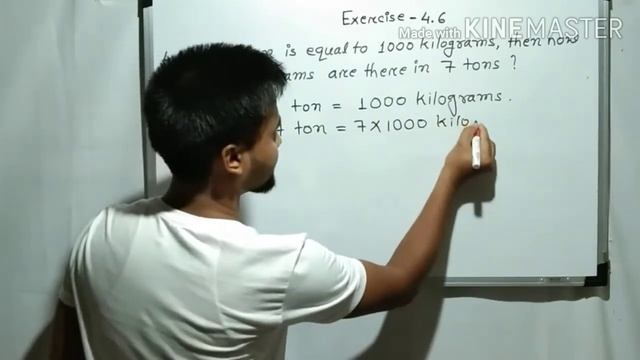 Exercise - 4.6
Made with KINEMASTER
is equal to 1000 kilograms, then how
are there in 7 tons ?
ton = 1000 kilograms.
ton = 7 × 1000 kilo